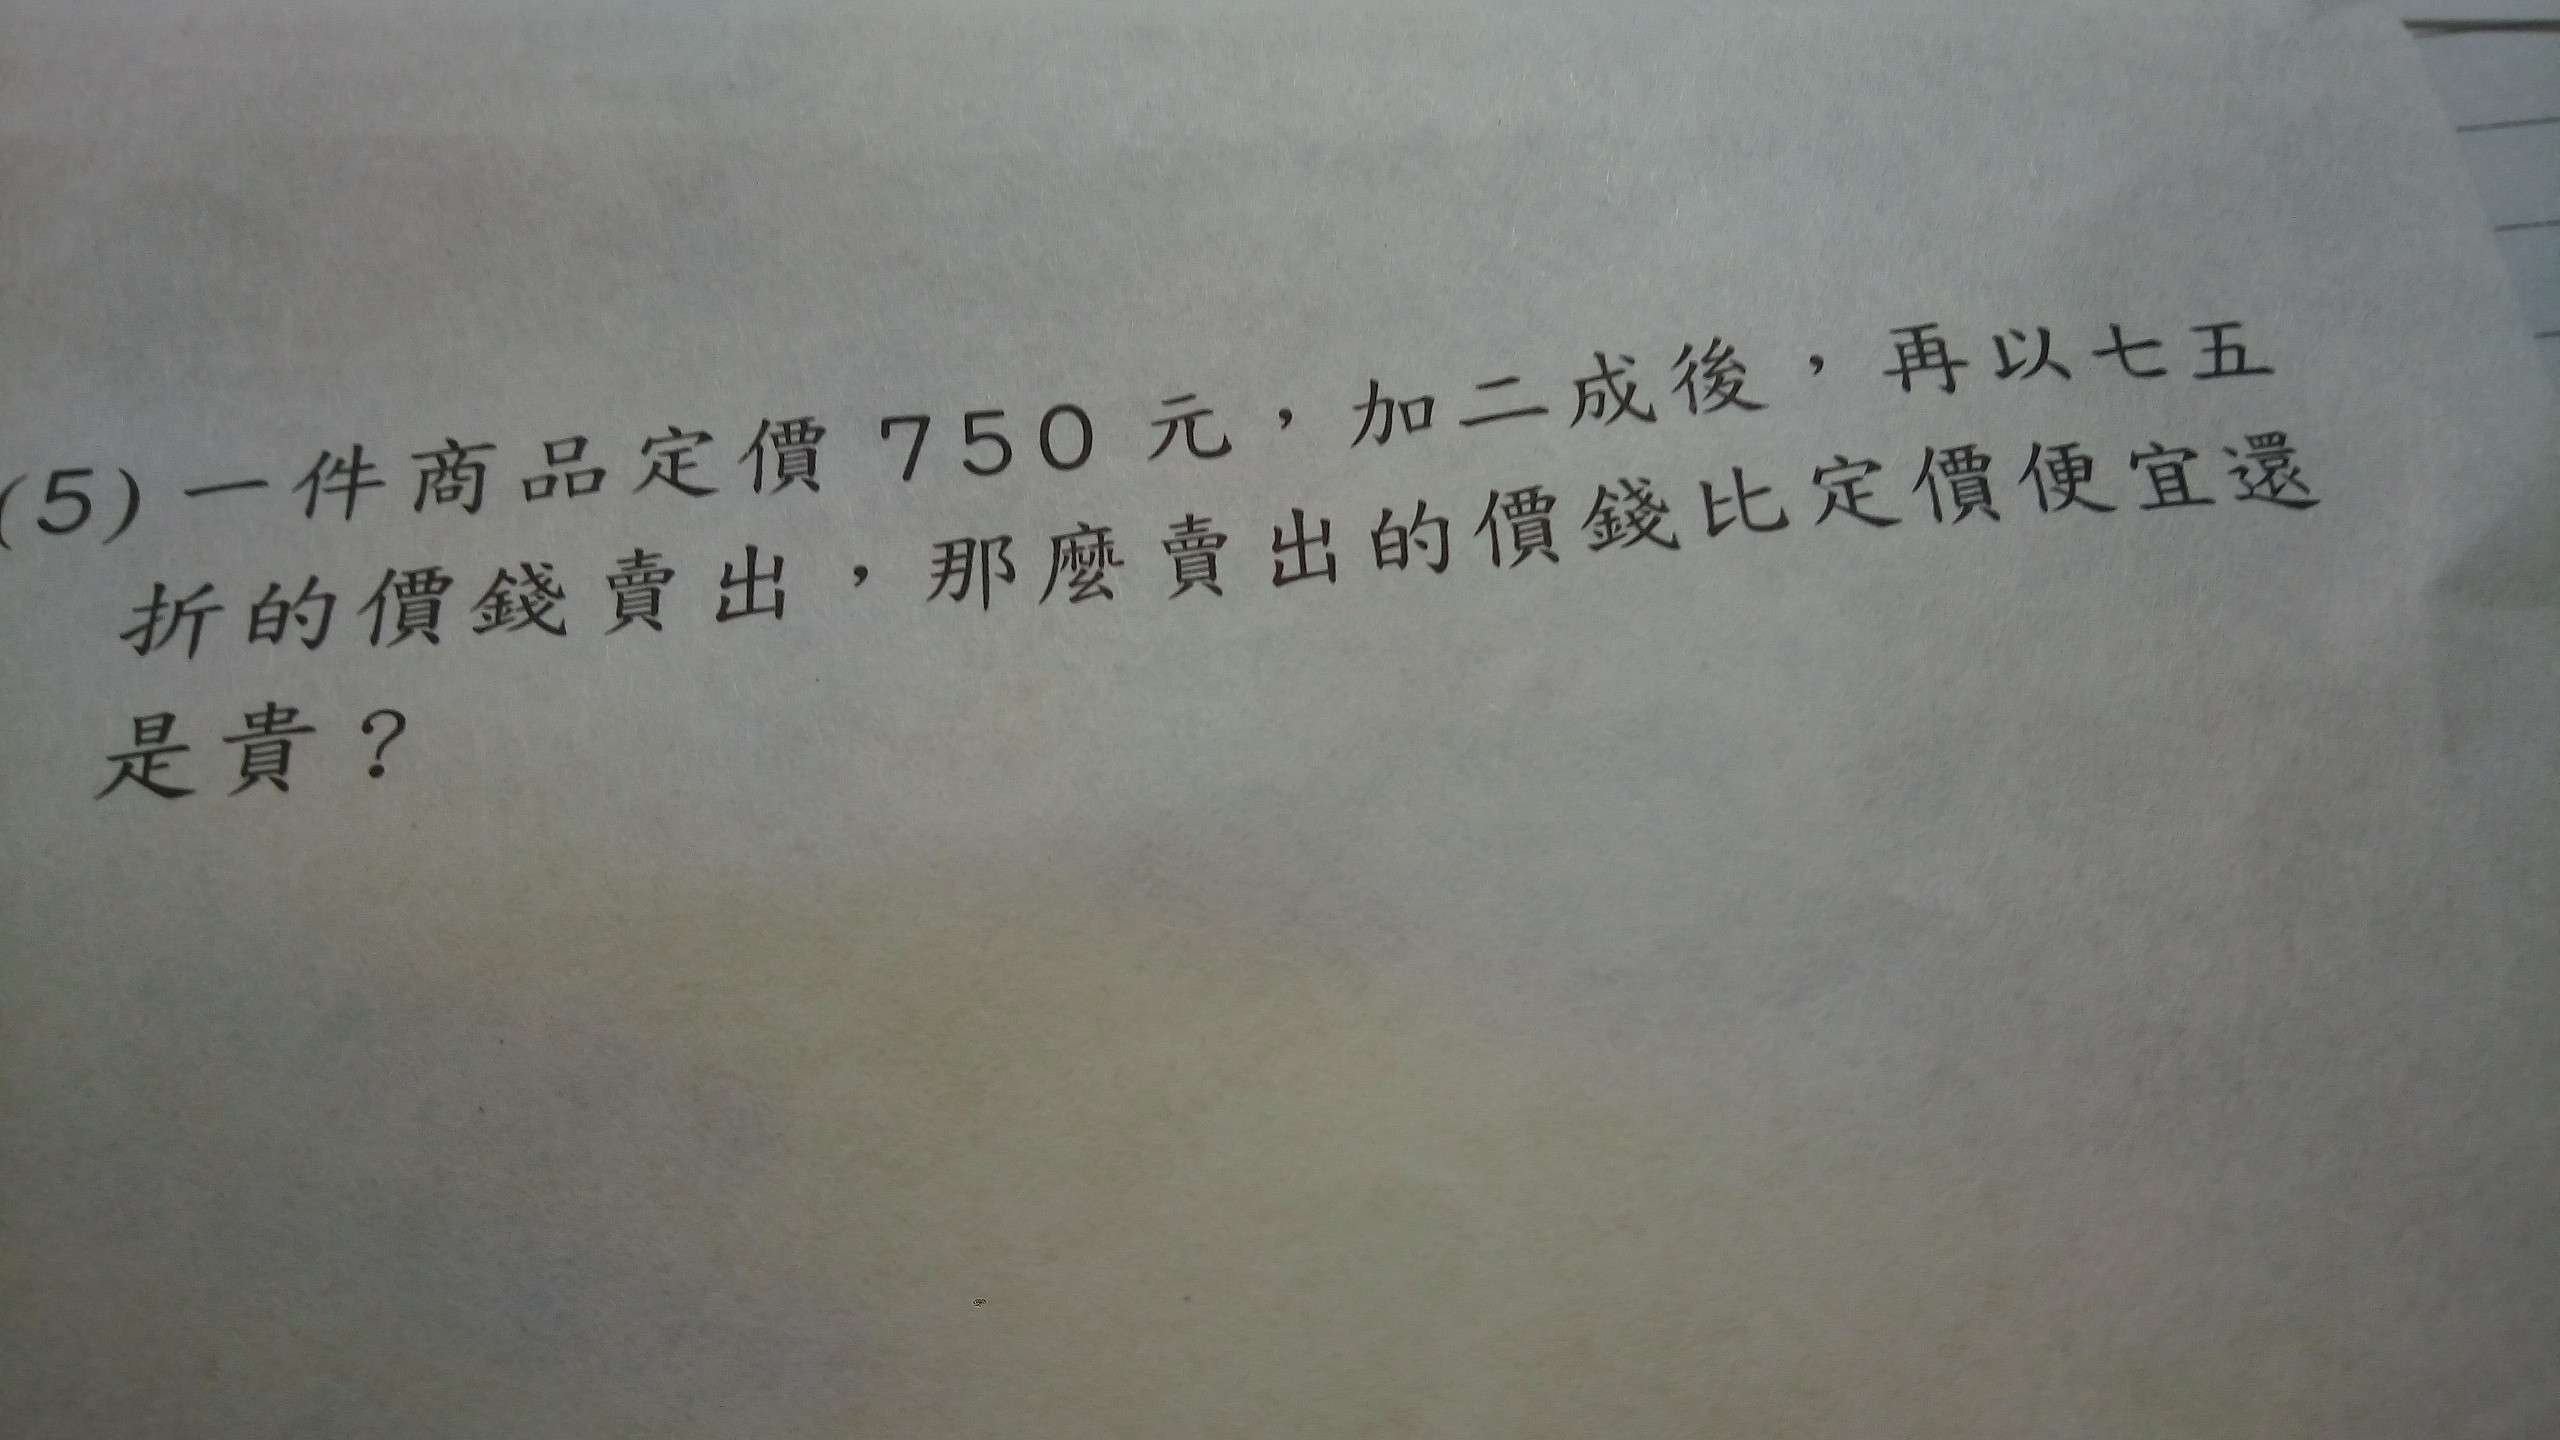 (5)一件商品定價 750 元，加二成後，再以七五
折的價錢賣出，那麼賣出的價錢比定價便宜還
是貴？